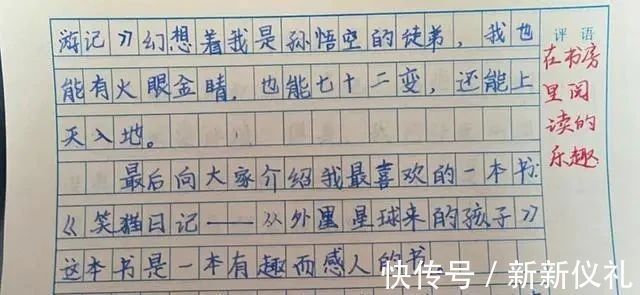 游记》幻想着我是孙悟空的徒弟，我也
能有火眼金睛，也能七十二变，还能上
天入地。
最后向大家介绍我最喜欢的一本书：
《笑猫日记——从外星球来的孩子》
这本书是一本有趣而感人的书，
评语
在书房
里阅
读的
乐趣
快传号／新新仪礼